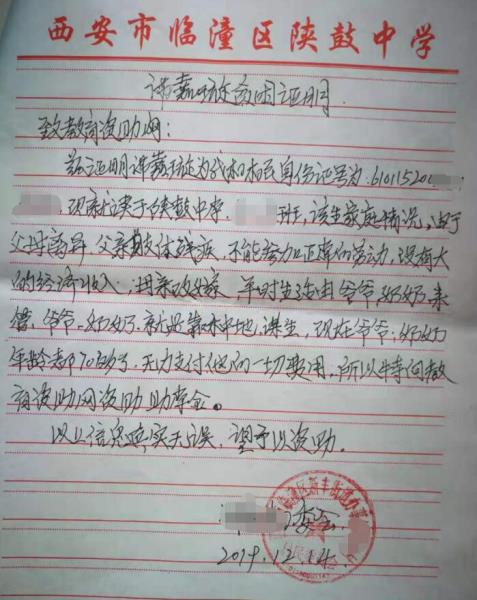 西安市临潼区陕鼓中学
许嘉琁贫困证明
致教育资助网:
兹证明许嘉琁为我村村民身份证号为:61011520
,现就读于陕鼓中学, 班,该生家庭情况,由于
父母离异,父亲肢体残疾,不能参加正常的劳动,没有大
的经济收入,母亲改嫁,平时生活由爷爷,奶奶来
管,爷爷、奶奶就是靠种地谋生,现在爷爷,奶奶
年龄都70的多了,无力支付他们的一切费用,所以特向教
育资助网资助助学金。
以上信息真实无误,望予以资助。
委会
2019.12.14.